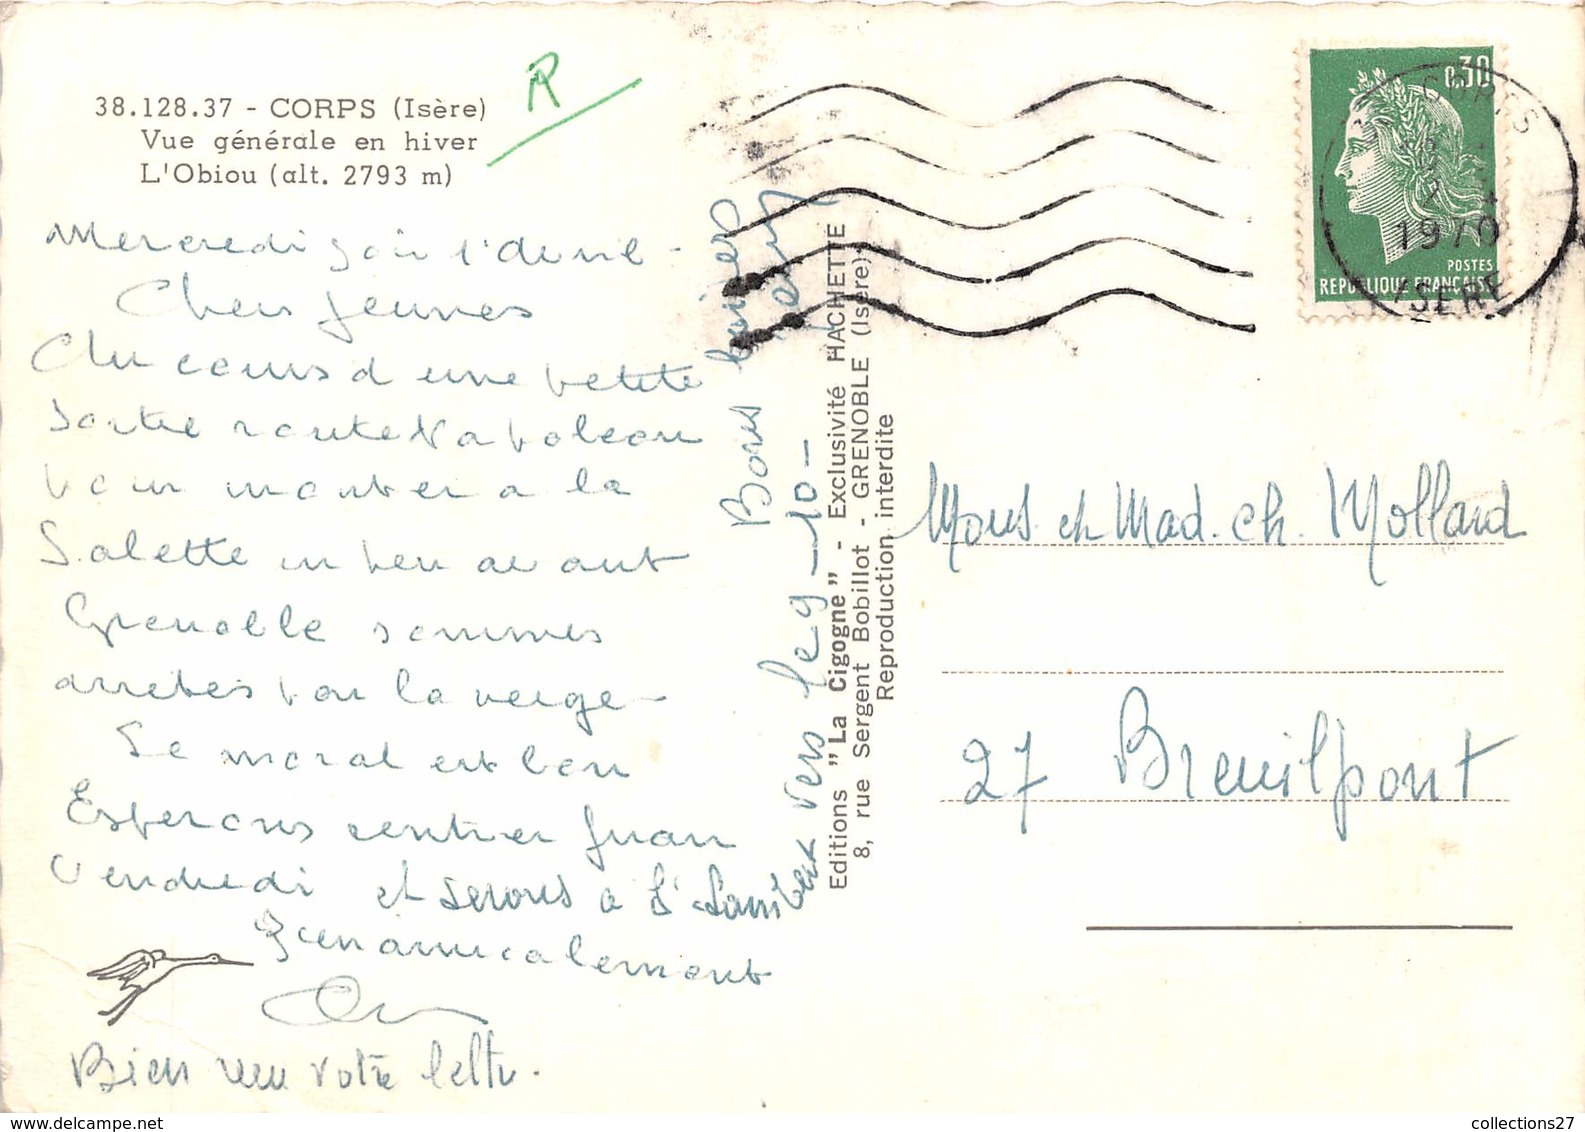 38.128.37 - CORPS (Isère)
Vue générale en hiver
L'Obiou (alt. 2793 m)
Mercredi soir 1 avril -
Chers jeunes
Au cours d une petite
sortie route Napoleon
pour monter a la
Salette un peu avant
Grenoble sommes
arretes par la neige -
Le moral est bon
Esperons rentrer
Vendredi et serons a St Lambert vers le 9-10-
Bien amicalement
Bien reçu votre lettre.
Bons baisers
Editions "La Cigogne" - Exclusivité HACHETTE
8, rue Sergent Bobillot - GRENOBLE (Isère)
Reproduction interdite
0,30
POSTES
REPUBLIQUE FRANÇAISE
CORPS
1970
ISÈRE
Mons. et Mad. Ch. Mollard
27 Breuilpont
collections27